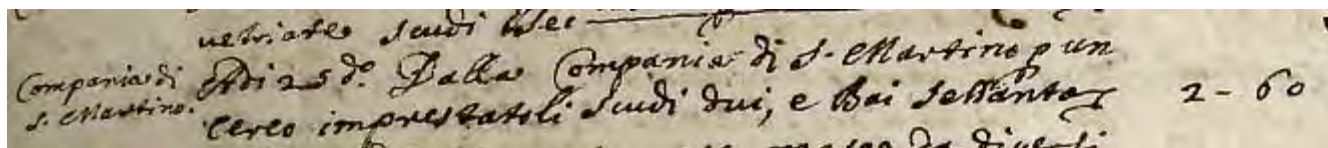 vetriate scudi tre
Compania di
S. Martino.
Adi 25 d.º Dalla Compania di S. Martino p un
cereo imprestatoli scudi dui, e Bai sessanta 2 - 60
da diversi